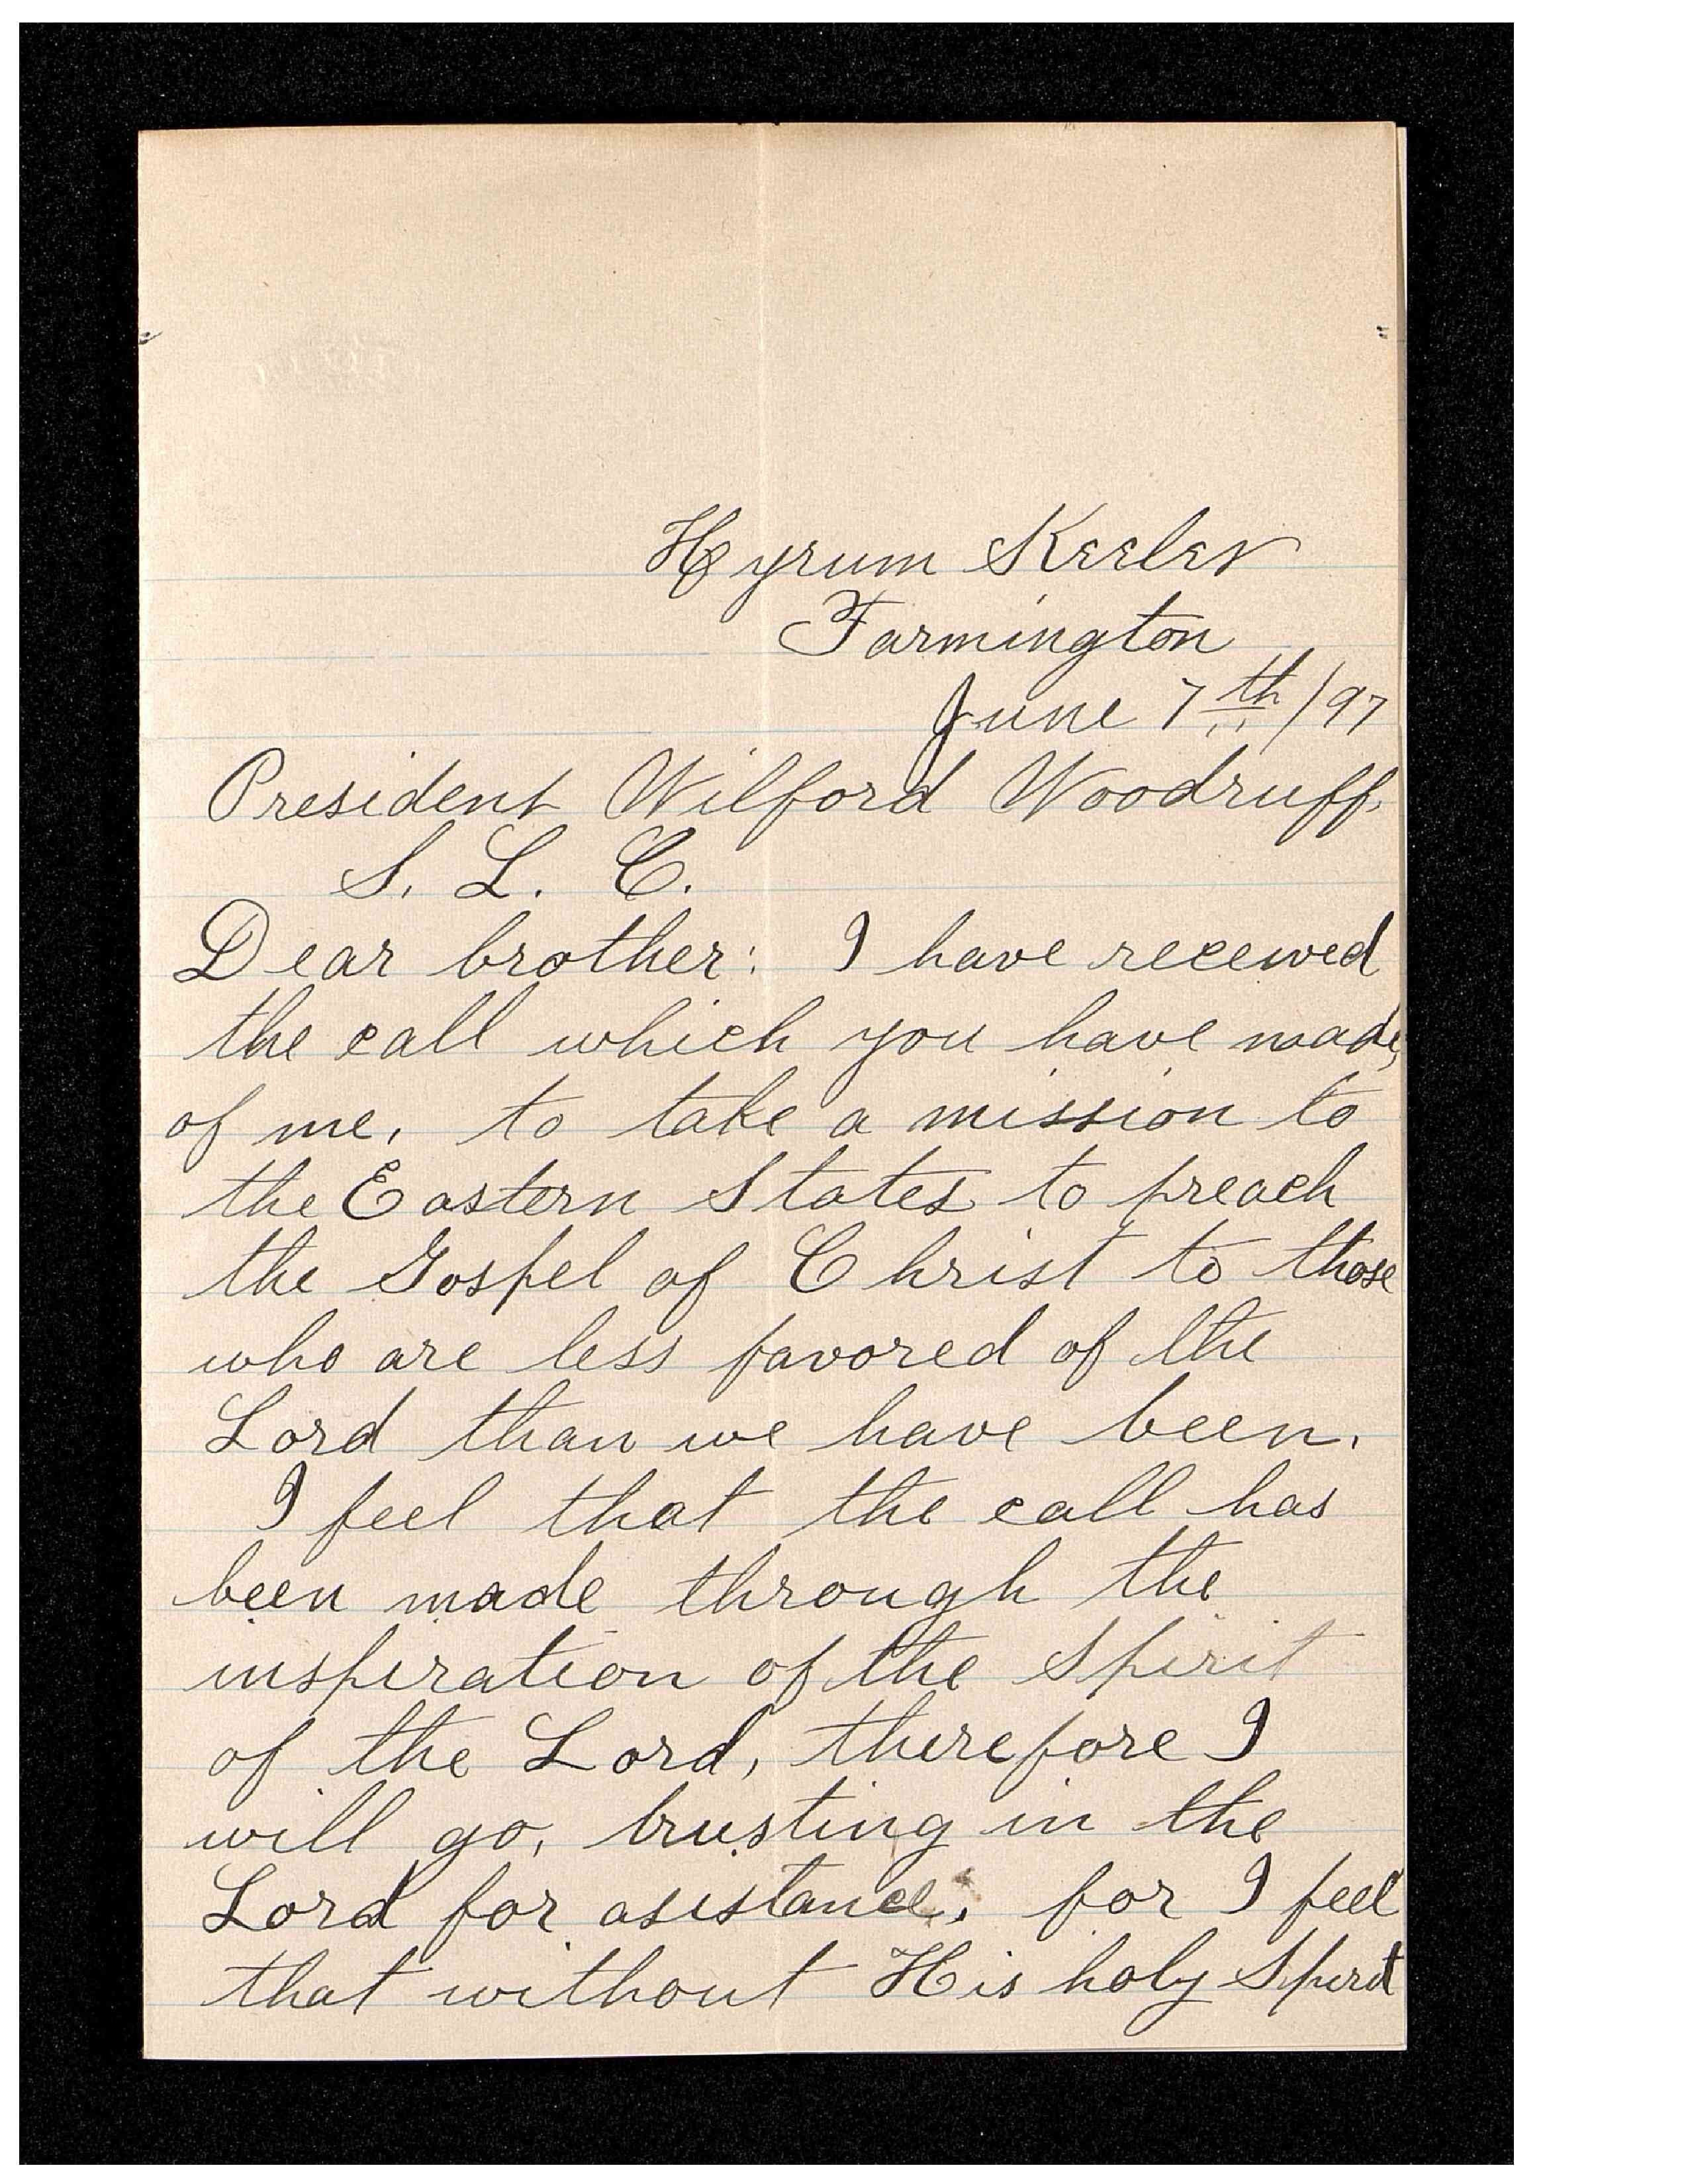 Hyrum Keeler
Farmington
June 7th /97
President Wilford Woodruff.
S. L. C.
Dear brother: I have received
the call which you have made,
of me, to take a mission to
the Eastern States to preach
the Gospel of Christ to those
who are less favored of the
Lord than we have been.
I feel that the call has
been made through the
inspiration of the Spirit
of the Lord, therefore I
will go, trusting in the
Lord for asistance, for I feel
that without His holy Spirit